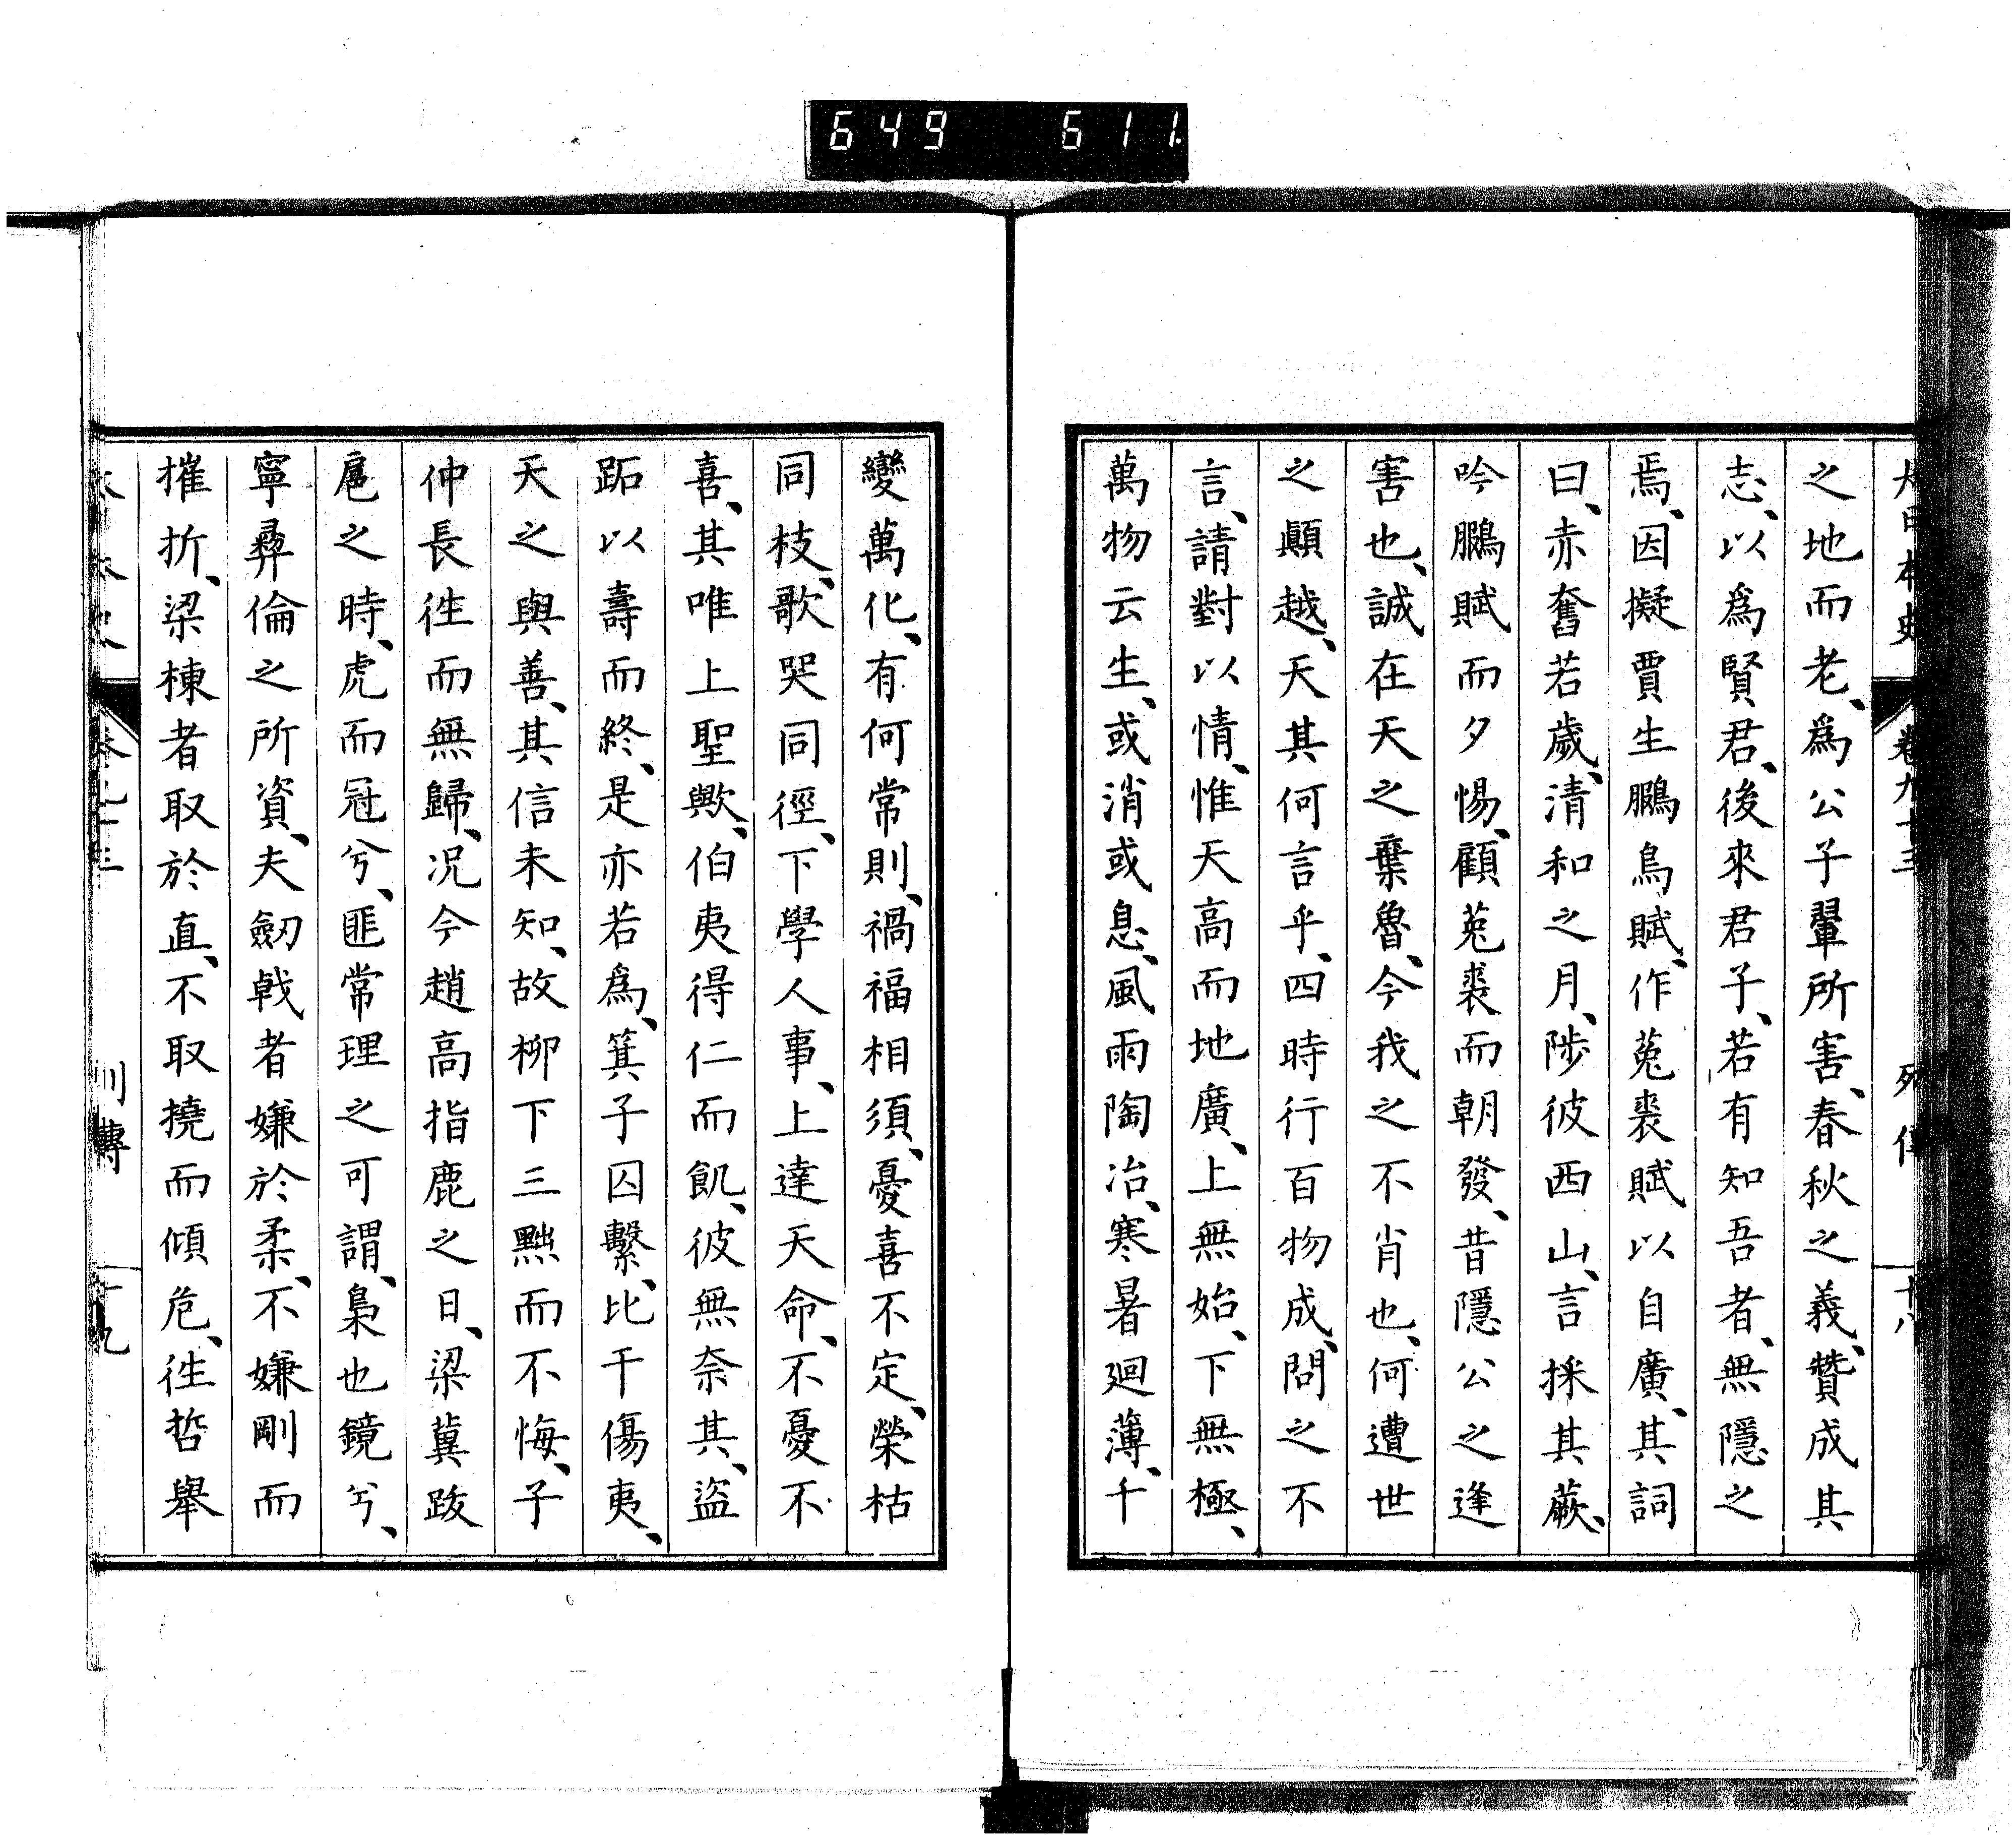 649 611
大日本史 卷九十三 列傳 十八
之地而老、爲公子翬所害、春秋之義、贊成其
志、以爲賢君、後來君子、若有知吾者、無隱之
焉、因擬賈生鵩鳥賦、作菟裘賦以自廣、其詞
曰、赤奮若歲、清和之月、陟彼西山、言採其蕨、
吟鵩賦而夕惕、顧菟裘而朝發、昔隱公之逢
害也、誠在天之棄魯、今我之不肖也、何遭世
之顚越、天其何言乎、四時行百物成、問之不
言、請對以情、惟天高而地廣、上無始、下無極、
萬物云生、或消或息、風雨陶冶、寒暑廻薄、千
變萬化、有何常則、禍福相須、憂喜不定、榮枯
同枝、歌哭同徑、下學人事、上達天命、不憂不
喜、其唯上聖歟、伯夷得仁而飢、彼無奈其、盜
跖以壽而終、是亦若爲、箕子囚繫、比干傷夷、
天之與善、其信未知、故柳下三黜而不悔、子
仲長徃而無歸、况今趙高指鹿之日、梁冀跋
扈之時、虎而冠兮、匪常理之可謂、梟也鏡兮、
寧彝倫之所資、夫劒戟者嫌於柔、不嫌剛而
摧折、梁棟者取於直、不取撓而傾危、徃哲舉
列傳 十九